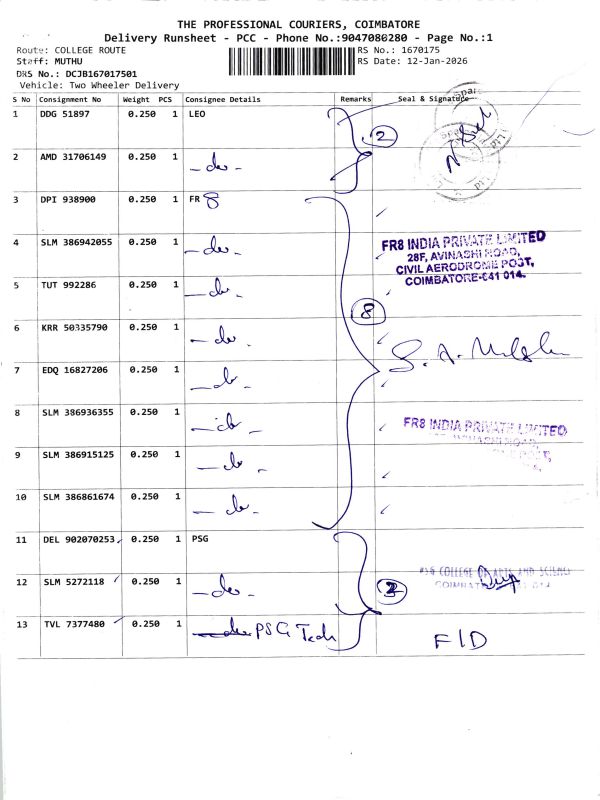 THE PROFESSIONAL COURIERS, COIMBATORE
Delivery Runsheet - PCC - Phone No.:9047080280 - Page No.:1
Route: COLLEGE ROUTE
RS No.: 1670175
Staff: MUTHU
RS Date: 12-Jan-2026
DRS No.: DCJB167017501
Vehicle: Two Wheeler Delivery
S No Consignment No Weight PCS Consignee Details Remarks Seal & Signature
1 DDG 51897 0.250 1 LEO
2 AMD 31706149 0.250 1 - do -
2
3 DPI 938900 0.250 1 FR 8
4 SLM 386942055 0.250 1 - do -
FR8 INDIA PRIVATE LIMITED
28F, AVINASHI ROAD,
CIVIL AERODROME POST,
COIMBATORE-641 014.
5 TUT 992286 0.250 1 - do -
8
6 KRR 50335790 0.250 1 - do -
7 EDQ 16827206 0.250 1 - do -
8 SLM 386936355 0.250 1 - do -
FR8 INDIA PRIVATE LIMITED
AVINASHI ROAD,
9 SLM 386915125 0.250 1 - do -
10 SLM 386861674 0.250 1 - do -
11 DEL 902070253 0.250 1 PSG
PSG COLLEGE OF ARTS AND SCIENCE
12 SLM 5272118 0.250 1 - do -
13 TVL 7377480 0.250 1 PSG Tech
F/D